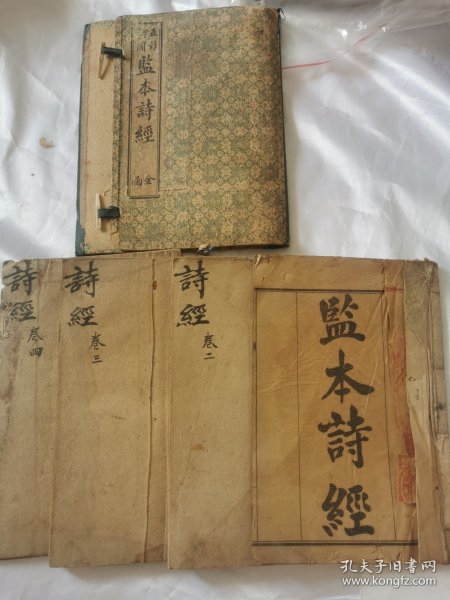 監本詩經
全函
監本詩經
詩經
卷二
詩經
卷三
詩經
卷四
孔夫子旧書网
www.kongfz.com